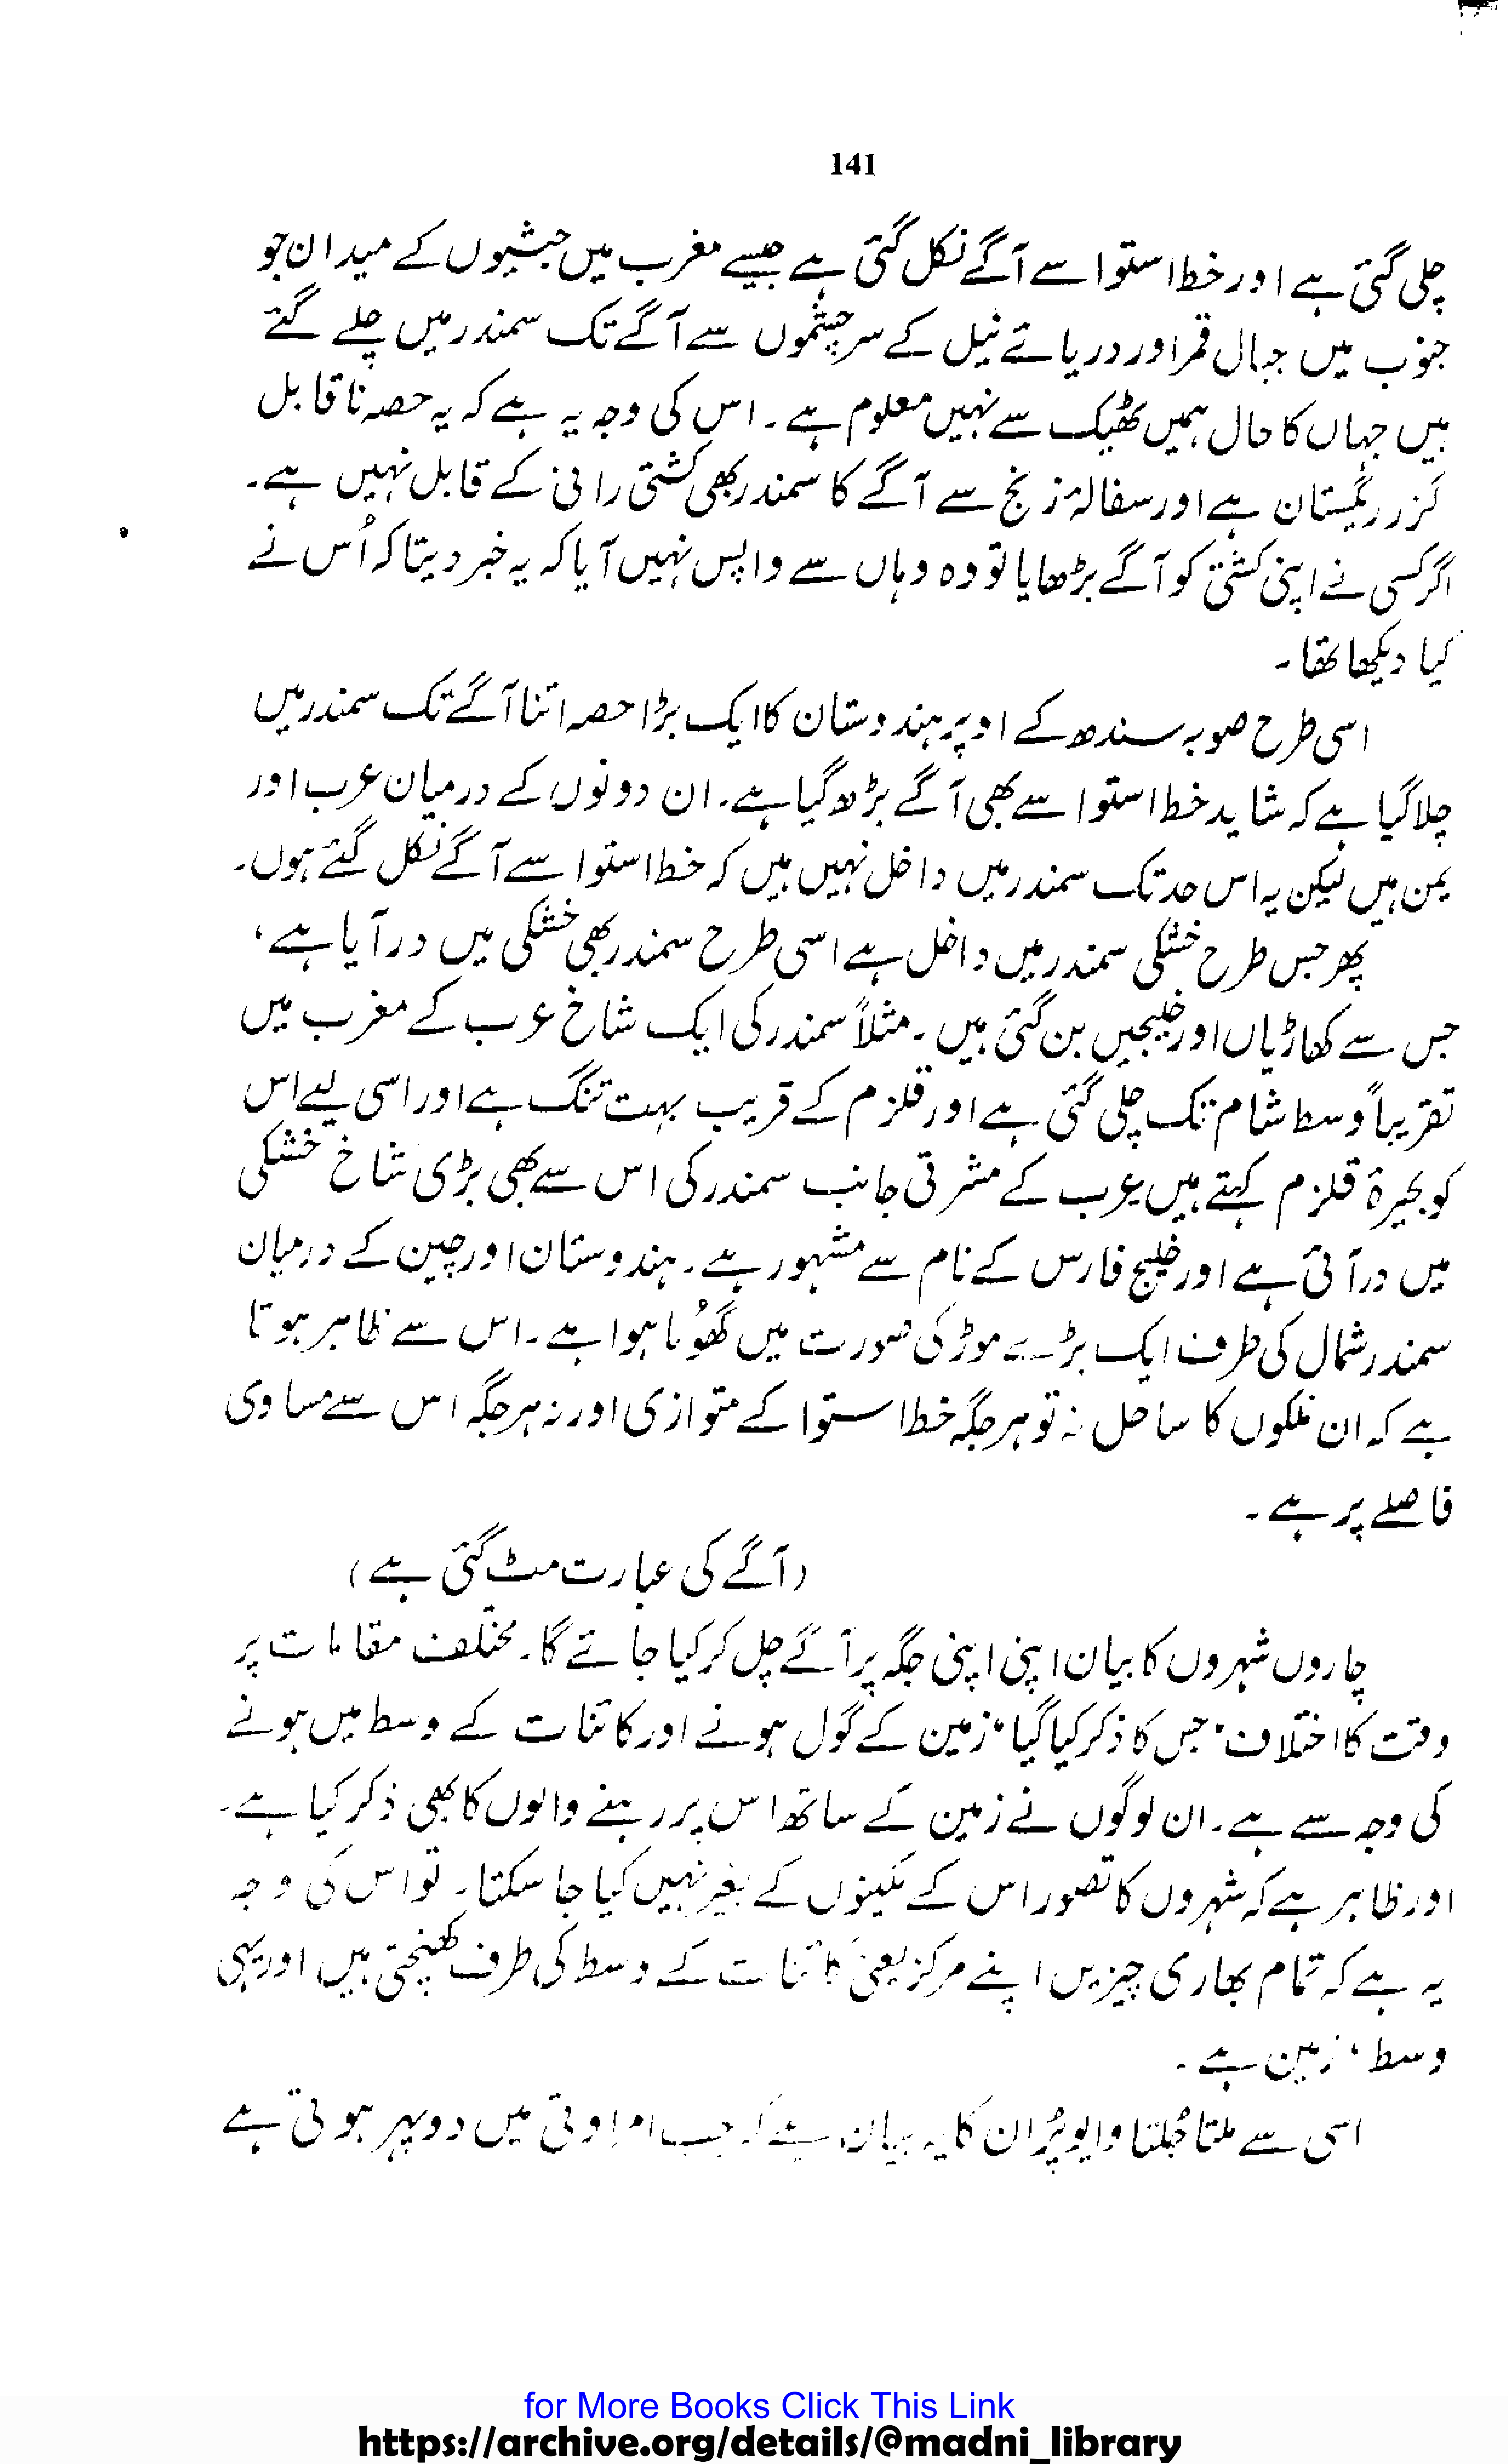 141
چلی گئی ہے اور خط استوا سے آگے نکل گئی ہے جیسے مغرب میں حبشیوں کے میدان جو
جنوب میں جبال قمر اور دریائے نیل کے سرچشموں سے آگے تک سمندر میں چلے گئے
ہیں جہاں کا حال ہمیں ٹھیک سے نہیں معلوم ہے۔ اس کی وجہ یہ ہے کہ یہ حصہ ناقابل
گزر ریگستان ہے اور سفالۂ زنج سے آگے کا سمندر بھی کشتی رانی کے قابل نہیں ہے۔
اگر کسی نے اپنی کشتی کو آگے بڑھایا تو وہ وہاں سے واپس نہیں آیا کہ یہ خبر دیتا کہ اُس نے
کیا دیکھا تھا۔
اسی طرح صوبہ سندھ کے اوپر ہندوستان کا ایک بڑا حصہ اتنا آگے تک سمندر میں
چلا گیا ہے کہ شاید خط استوا سے بھی آگے بڑھ گیا ہے۔ ان دونوں کے درمیان عرب اور
یمن ہیں لیکن یہ اس حد تک سمندر میں داخل نہیں ہیں کہ خط استوا سے آگے نکل گئے ہوں۔
پھر جس طرح خشکی سمندر میں داخل ہے اسی طرح سمندر بھی خشکی میں در آیا ہے،
جس سے کھاڑیاں اور خلیجیں بن گئی ہیں۔ مثلاً سمندر کی ایک شاخ عرب کے مغرب میں
تقریباً وسط شام تک چلی گئی ہے اور قلزم کے قریب بہت تنگ ہے اور اسی لیے اس
کو بحیرۂ قلزم کہتے ہیں عرب کے مشرقی جانب سمندر کی اس سے بھی بڑی شاخ خشکی
میں در آئی ہے اور خلیج فارس کے نام سے مشہور ہے۔ ہندوستان اور چین کے درمیان
سمندر شمال کی طرف ایک بڑے موڑ کی صورت میں گھُوما ہوا ہے۔ اس سے ظاہر ہوتا
ہے کہ ان ملکوں کا ساحل نہ تو ہر جگہ خط استوا کے متوازی اور نہ ہر جگہ اس سے مساوی
فاصلے پر ہے۔
(آگے کی عبارت مٹ گئی ہے)
چاروں شہروں کا بیان اپنی اپنی جگہ پر آگے چل کر کیا جائے گا۔ مختلف مقامات پر
وقت کا اختلاف، جس کا ذکر کیا گیا، زمین کے گول ہونے اور کائنات کے وسط میں ہونے
کی وجہ سے ہے۔ ان لوگوں نے زمین کے ساتھ اس پر رہنے والوں کا بھی ذکر کیا ہے۔
اور ظاہر ہے کہ شہروں کا تصور اس کے مکینوں کے بغیر نہیں کیا جا سکتا۔ تو اس کی وجہ
یہ ہے کہ تمام بھاری چیزیں اپنے مرکز یعنی کائنات کے وسط کی طرف کھنچتی ہیں اور یہی
وسط، زمین ہے۔
اسی سے ملتا جُلتا وایو پُران کا یہ بیان ہے کہ جب امراوتی میں دوپہر ہوتی ہے
for More Books Click This Link
https://archive.org/details/@madni_library